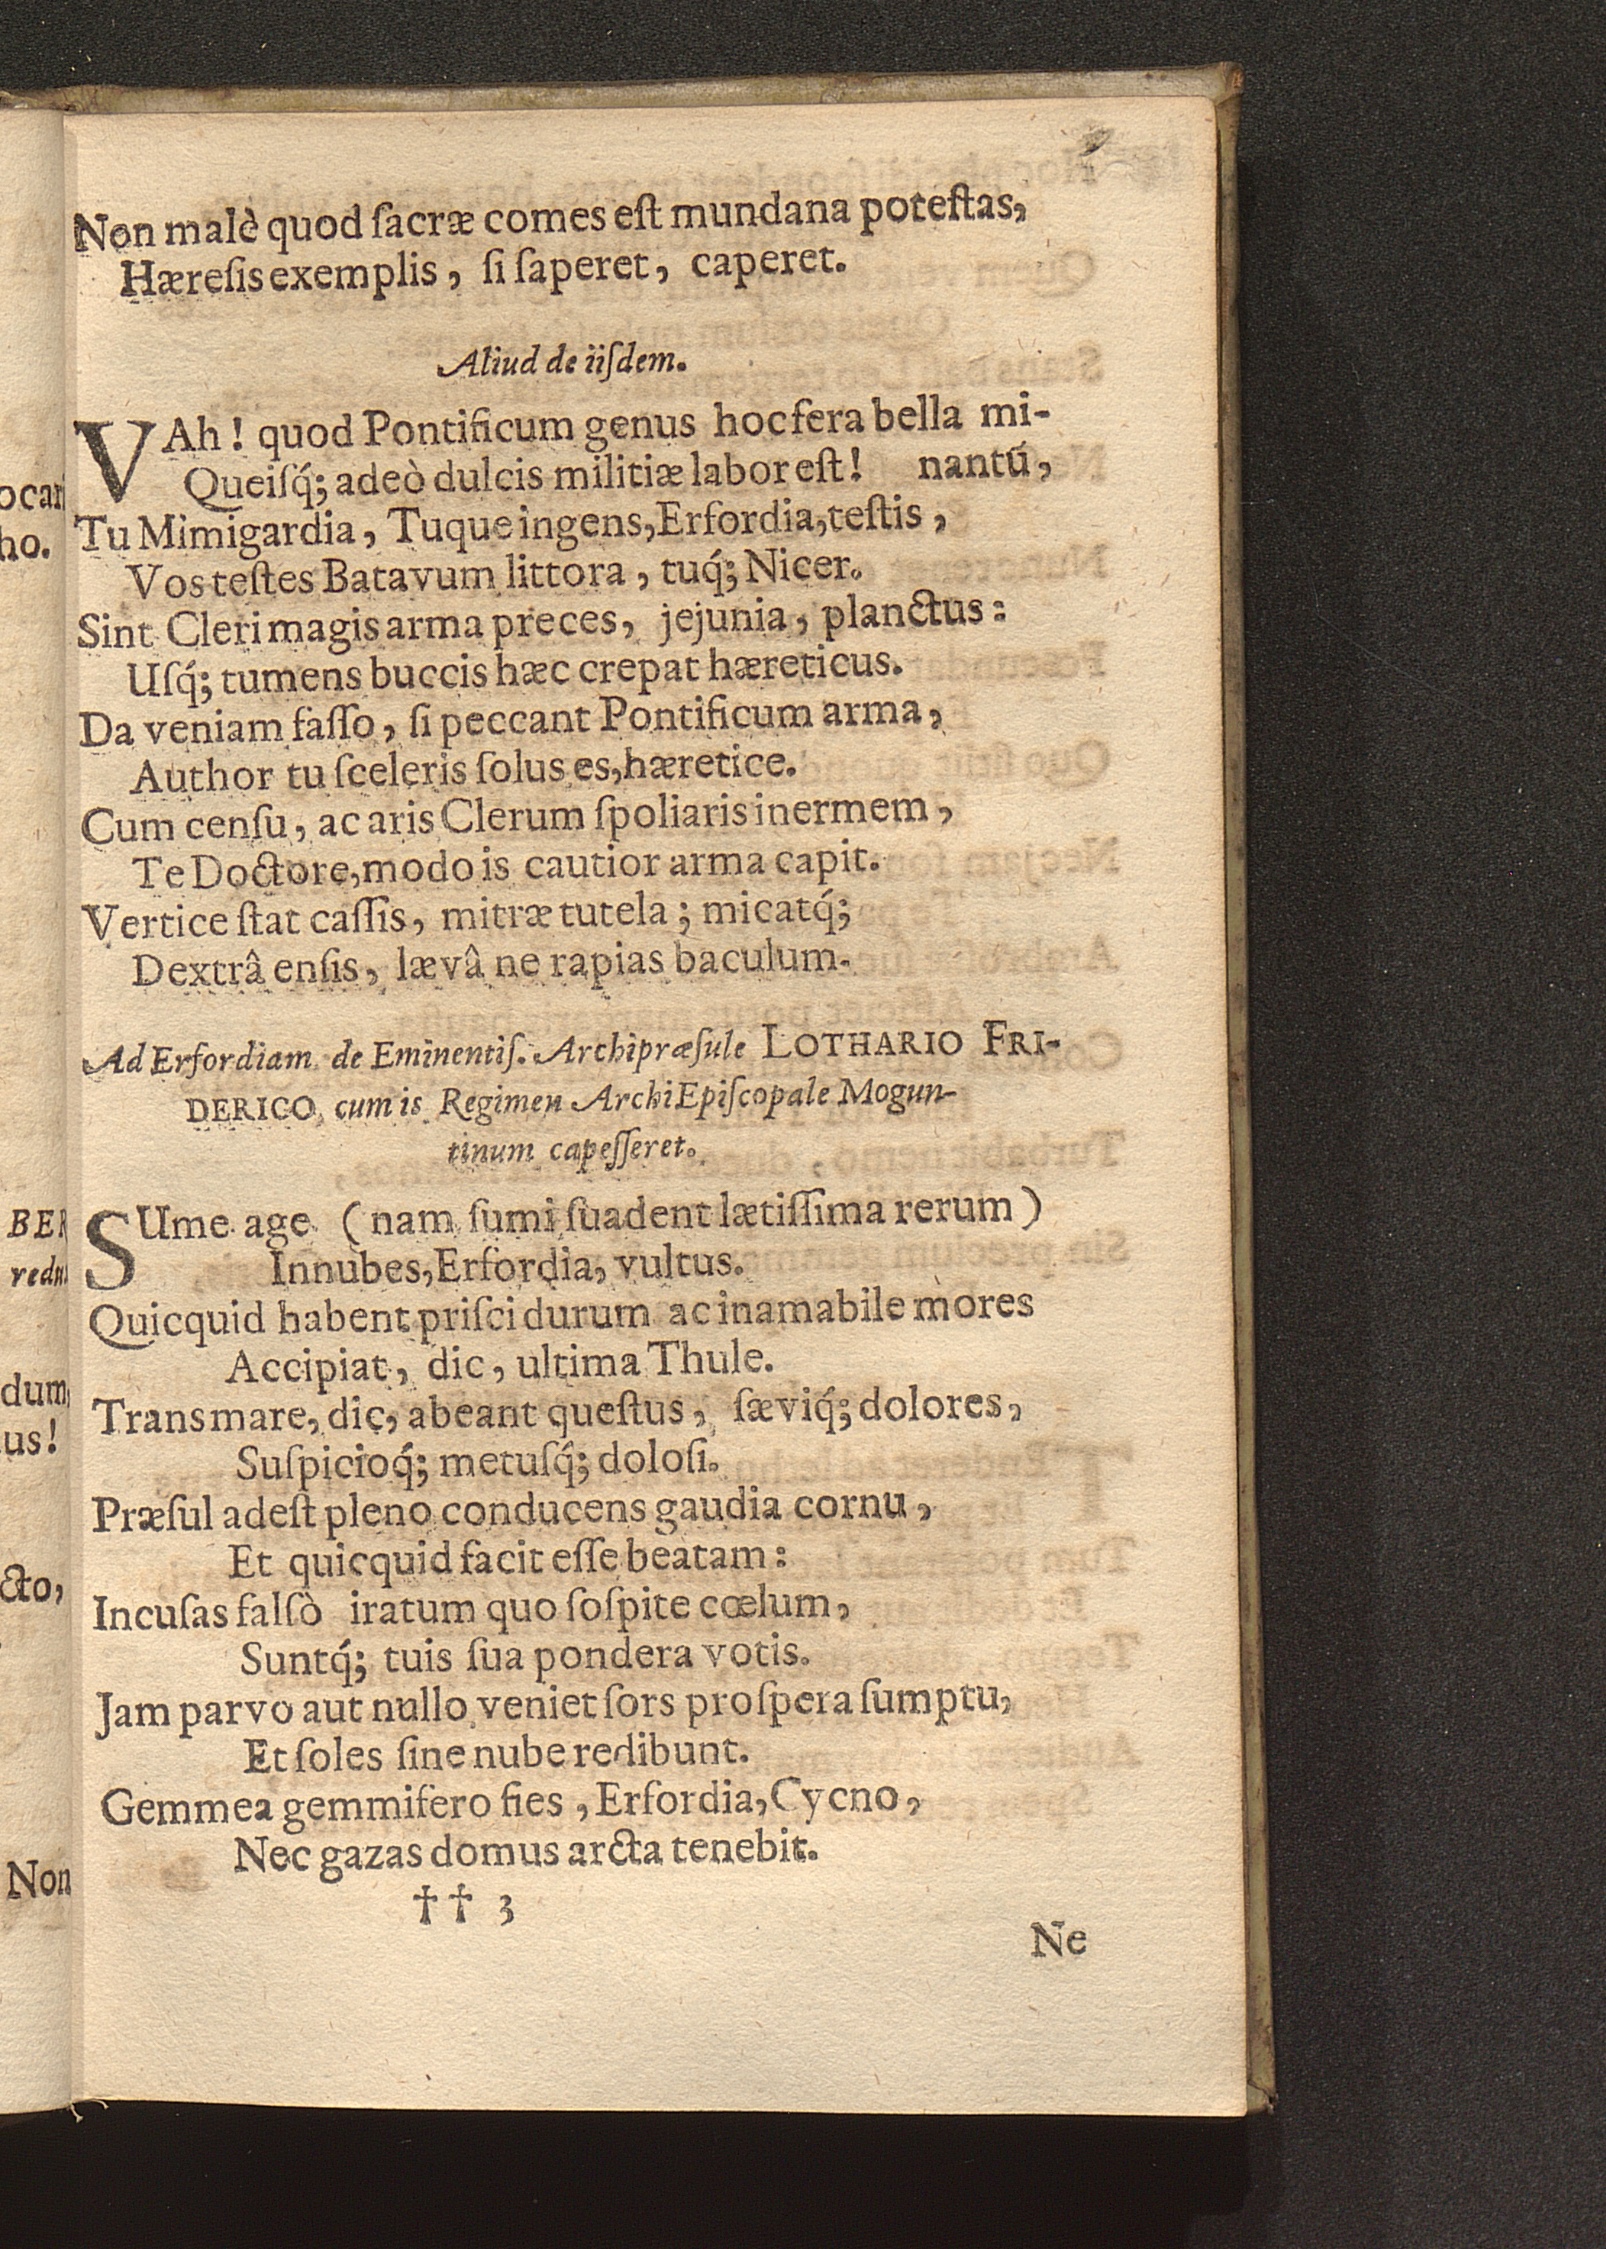 Non malè quod ſacræ comes eſt mundana poteſtas,
Hæreſis exemplis, ſi ſaperet, caperet.
Aliud de iiſdem.
VAh! quod Pontificum genus hoc fera bella mi-
Queiſq́; adeò dulcis militiæ labor eſt! nantū,
Tu Mimigardia, Tuque ingens, Erfordia, teſtis,
Vos teſtes Batavum littora, tuq́; Nicer.
Sint Cleri magis arma preces, jejunia, planctus:
Uſq́; tumens buccis hæc crepat hæreticus.
Da veniam faſſo, ſi peccant Pontificum arma,
Author tu ſceleris ſolus es, hæretice.
Cum cenſu, ac aris Clerum ſpoliaris inermem,
Te Doctore, modo is cautior arma capit.
Vertice ſtat caſſis, mitræ tutela; micatq́;
Dextrâ enſis, lævâ ne rapias baculum.
Ad Erfordiam de Eminentiſ. Archipræſule LOTHARIO FRI-
DERICO, cum is Regimen ArchiEpiſcopale Mogun-
tinum capeſſeret.
SUme age (nam ſumi ſuadent lætiſſima rerum)
Innubes, Erfordia, vultus.
Quicquid habent priſci durum ac inamabile mores
Accipiat, dic, ultima Thule.
Trans mare, dic, abeant queſtus, ſæviq́; dolores,
Suſpicioq́; metuſq́; doloſi.
Præſul adeſt pleno conducens gaudia cornu,
Et quicquid facit eſſe beatam:
Incuſas falſò iratum quo ſoſpite cœlum,
Suntq́; tuis ſua pondera votis.
Jam parvo aut nullo veniet ſors proſpera ſumptu,
Et ſoles ſine nube redibunt.
Gemmea gemmifero fies, Erfordia, Cycno,
Nec gazas domus arcta tenebit.
†† 3
Ne